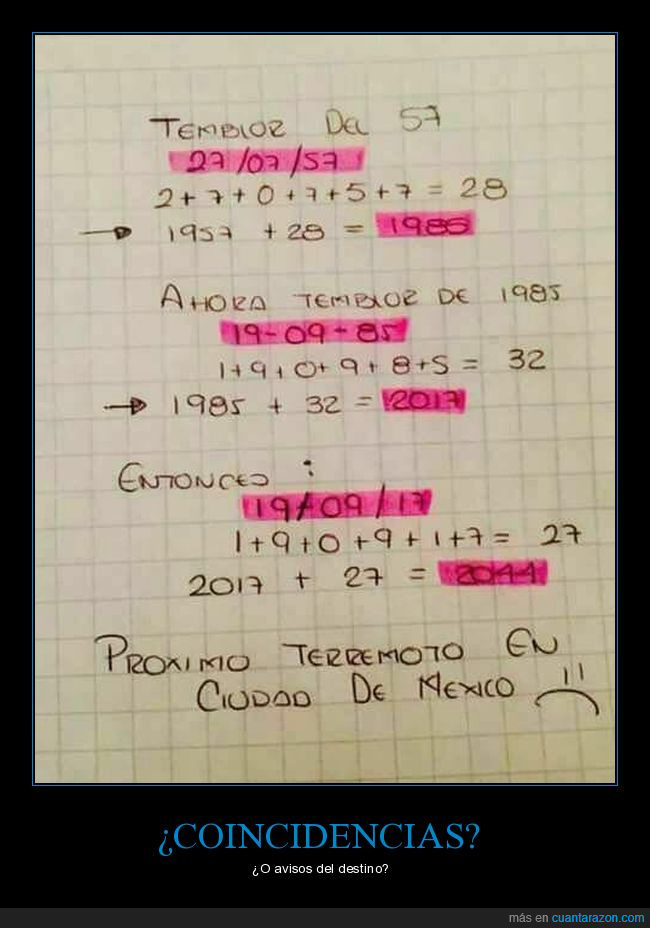 TEMBLOR DEL 57
27/07/57
2+7+0+7+5+7=28
1957 +28 = 1985
AHORA TEMBLOR DE 1985
19-09-85
1+9+0+9+8+5= 32
1985 + 32 = 2017
ENTONCES :
19/09/17
1+9+0+9+1+7= 27
2017 + 27 = 2044
PROXIMO TERREMOTO EN
CIUDAD DE MEXICO
¿COINCIDENCIAS?
¿O avisos del destino?
más en cuantarazon.com